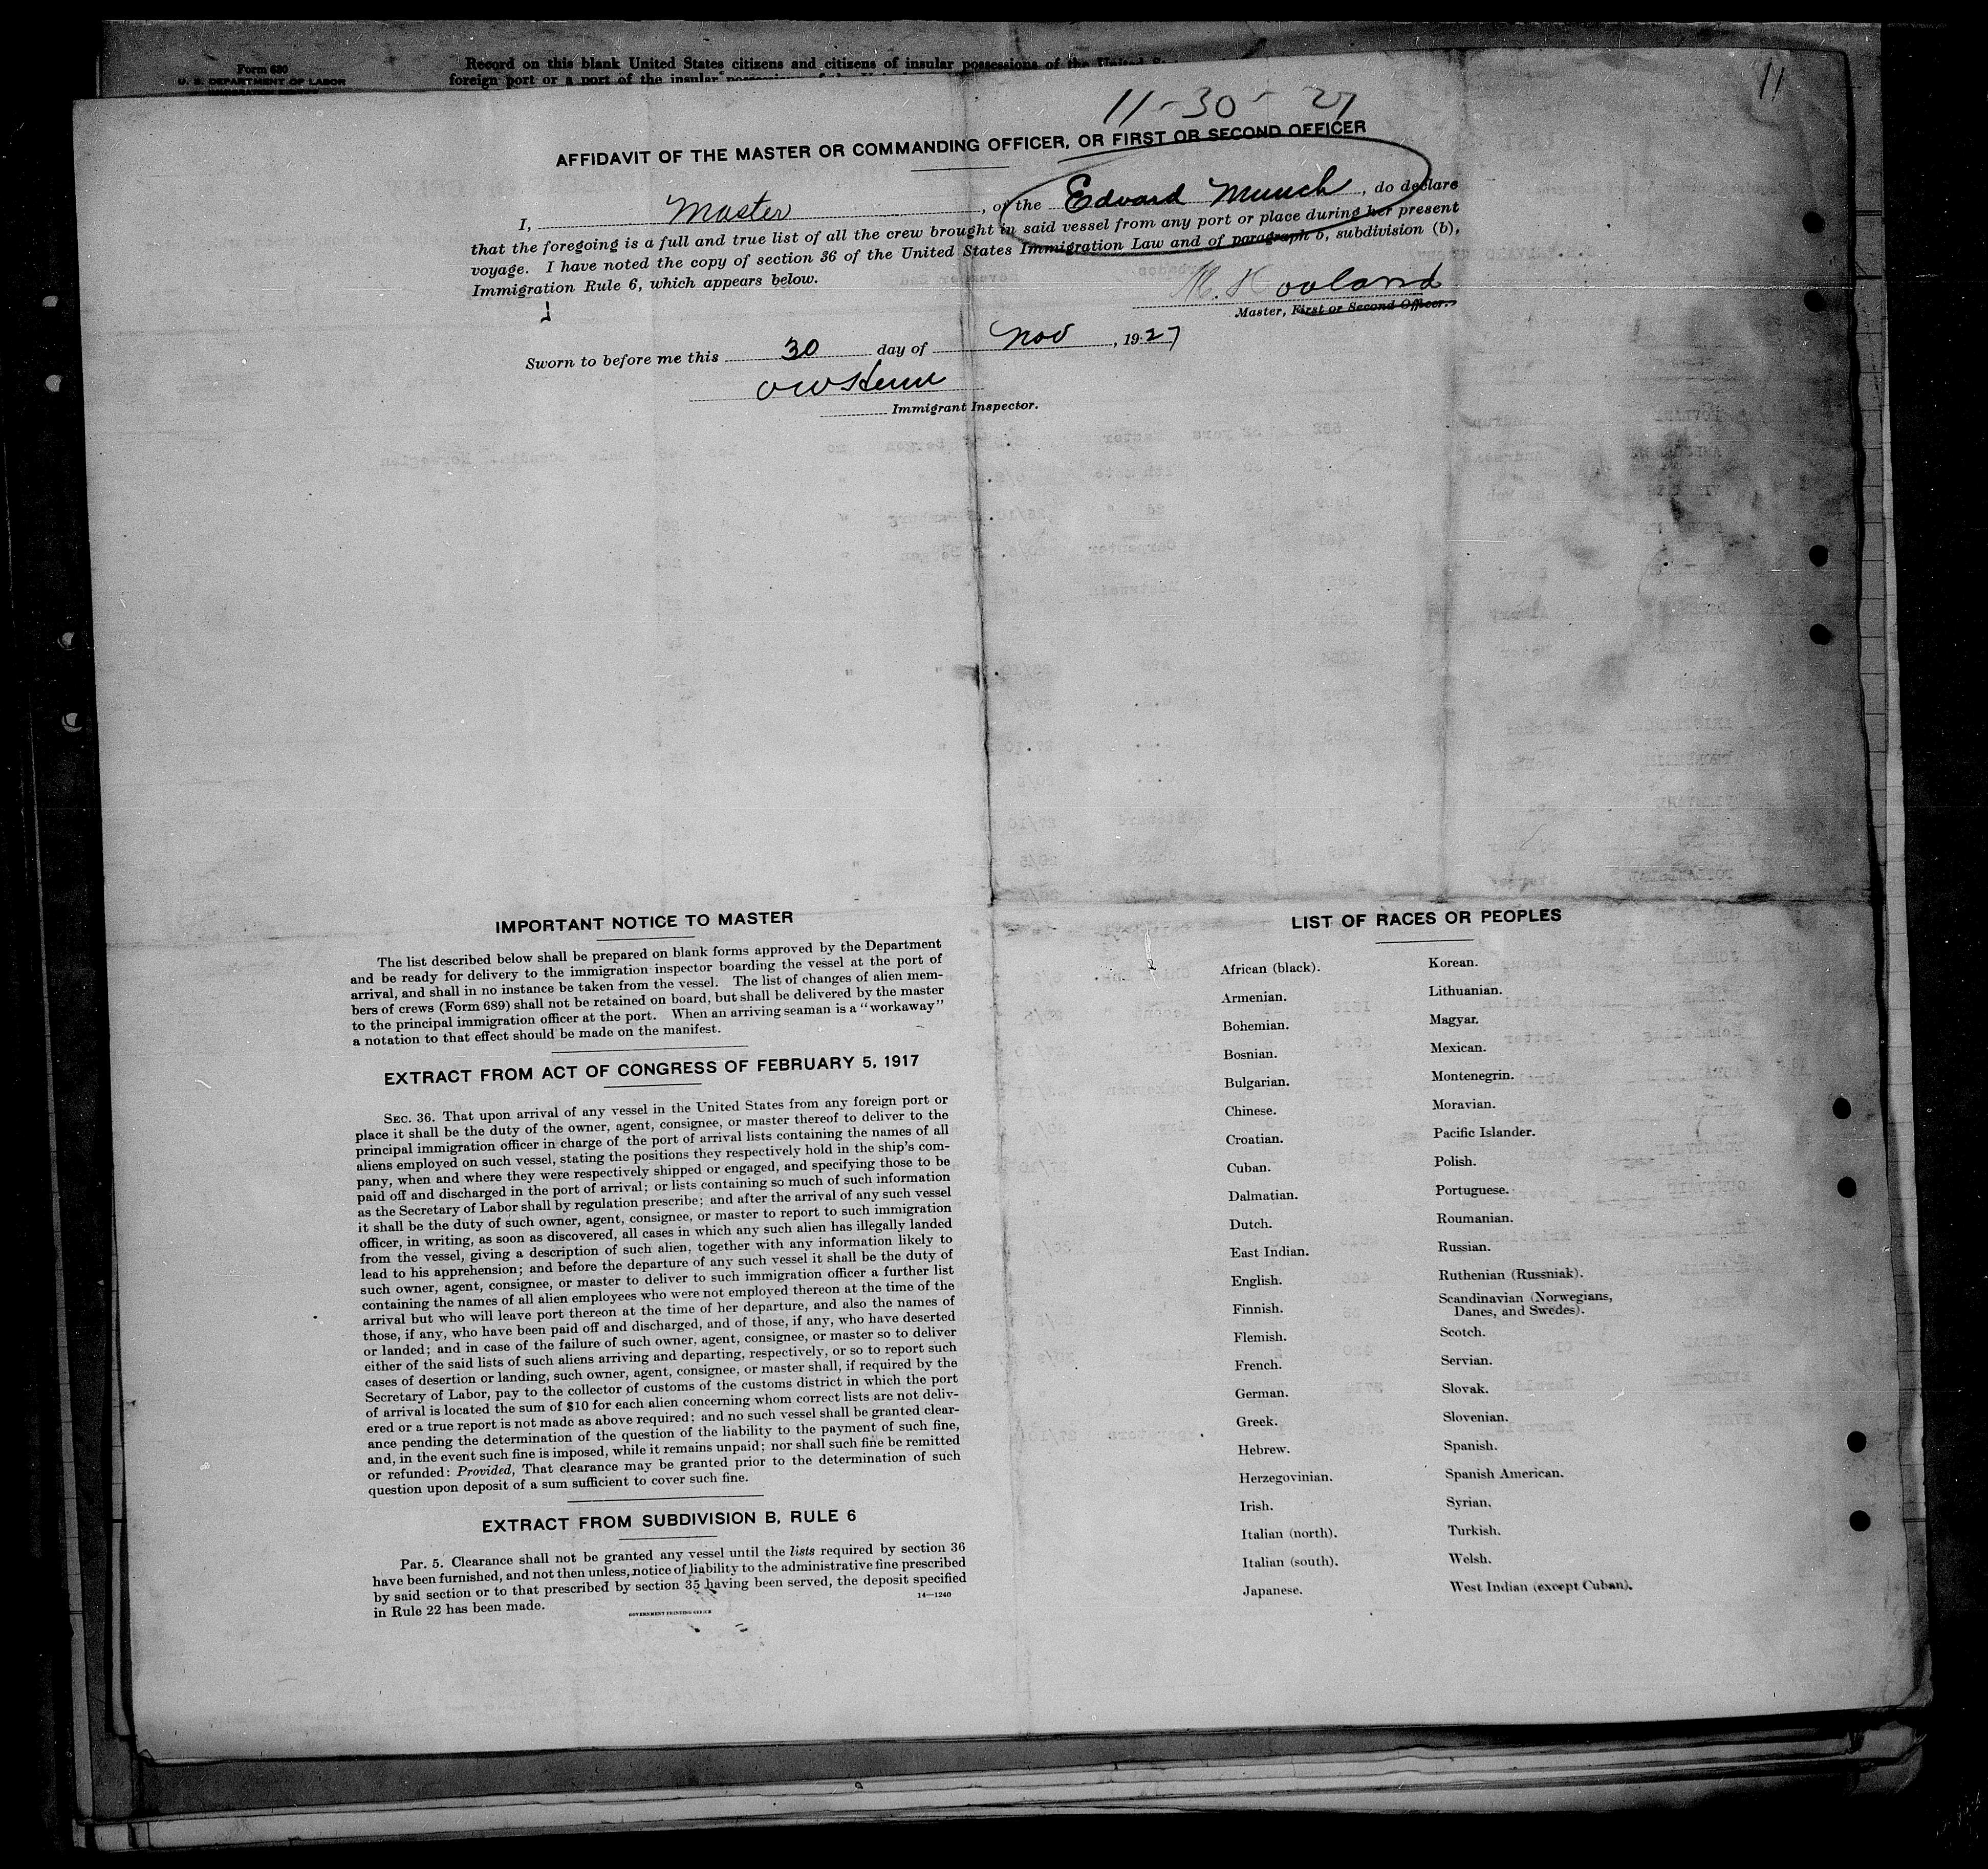 Form 680
U. S. DEPARTMENT OF LABOR
Record on this blank United States citizens and citizens of insular possessions of the United
foreign port or a port of the insular
11
11-30-27
AFFIDAVIT OF THE MASTER OR COMMANDING OFFICER, OR FIRST OR SECOND OFFICER
I, Master, of the Edvard Munch, do declare
that the foregoing is a full and true list of all the crew brought in said vessel from any port or place during her present
voyage. I have noted the copy of section 36 of the United States Immigration Law and of paragraph 5, subdivision (b),
Immigration Rule 6, which appears below.
M. Hovland
Master, First or Second Officer.
Sworn to before me this 30 day of Nov, 1927
Immigrant Inspector.
IMPORTANT NOTICE TO MASTER
The list described below shall be prepared on blank forms approved by the Department
and be ready for delivery to the immigration inspector boarding the vessel at the port of
arrival, and shall in no instance be taken from the vessel. The list of changes of alien mem-
bers of crews (Form 689) shall not be retained on board, but shall be delivered by the master
to the principal immigration officer at the port. When an arriving seaman is a "workaway"
a notation to that effect should be made on the manifest.
EXTRACT FROM ACT OF CONGRESS OF FEBRUARY 5, 1917
SEC. 36. That upon arrival of any vessel in the United States from any foreign port or
place it shall be the duty of the owner, agent, consignee, or master thereof to deliver to the
principal immigration officer in charge of the port of arrival lists containing the names of all
aliens employed on such vessel, stating the positions they respectively hold in the ship's com-
pany, when and where they were respectively shipped or engaged, and specifying those to be
paid off and discharged in the port of arrival; or lists containing so much of such information
as the Secretary of Labor shall by regulation prescribe; and after the arrival of any such vessel
it shall be the duty of such owner, agent, consignee, or master to report to such immigration
officer, in writing, as soon as discovered, all cases in which any such alien has illegally landed
from the vessel, giving a description of such alien, together with any information likely to
lead to his apprehension; and before the departure of any such vessel it shall be the duty of
such owner, agent, consignee, or master to deliver to such immigration officer a further list
containing the names of all alien employees who were not employed thereon at the time of the
arrival but who will leave port thereon at the time of her departure, and also the names of
those, if any, who have been paid off and discharged, and of those, if any, who have deserted
or landed; and in case of the failure of such owner, agent, consignee, or master so to deliver
either of the said lists of such aliens arriving and departing, respectively, or so to report such
cases of desertion or landing, such owner, agent, consignee, or master shall, if required by the
Secretary of Labor, pay to the collector of customs of the customs district in which the port
of arrival is located the sum of $10 for each alien concerning whom correct lists are not deliv-
ered or a true report is not made as above required; and no such vessel shall be granted clear-
ance pending the determination of the question of the liability to the payment of such fine,
and, in the event such fine is imposed, while it remains unpaid; nor shall such fine be remitted
or refunded: Provided, That clearance may be granted prior to the determination of such
question upon deposit of a sum sufficient to cover such fine.
EXTRACT FROM SUBDIVISION B, RULE 6
Par. 5. Clearance shall not be granted any vessel until the lists required by section 36
have been furnished, and not then unless, notice of liability to the administrative fine prescribed
by said section or to that prescribed by section 35 having been served, the deposit specified
in Rule 22 has been made.
14—1240
GOVERNMENT PRINTING OFFICE
LIST OF RACES OR PEOPLES
African (black).
Armenian.
Bohemian.
Bosnian.
Bulgarian.
Chinese.
Croatian.
Cuban.
Dalmatian.
Dutch.
East Indian.
English.
Finnish.
Flemish.
French.
German.
Greek.
Hebrew.
Herzegovinian.
Irish.
Italian (north).
Italian (south).
Japanese.
Korean.
Lithuanian.
Magyar.
Mexican.
Montenegrin.
Moravian.
Pacific Islander.
Polish.
Portuguese.
Roumanian.
Russian.
Ruthenian (Russniak).
Scandinavian (Norwegians,
Danes, and Swedes).
Scotch.
Servian.
Slovak.
Slovenian.
Spanish.
Spanish American.
Syrian.
Turkish.
Welsh.
West Indian (except Cuban).